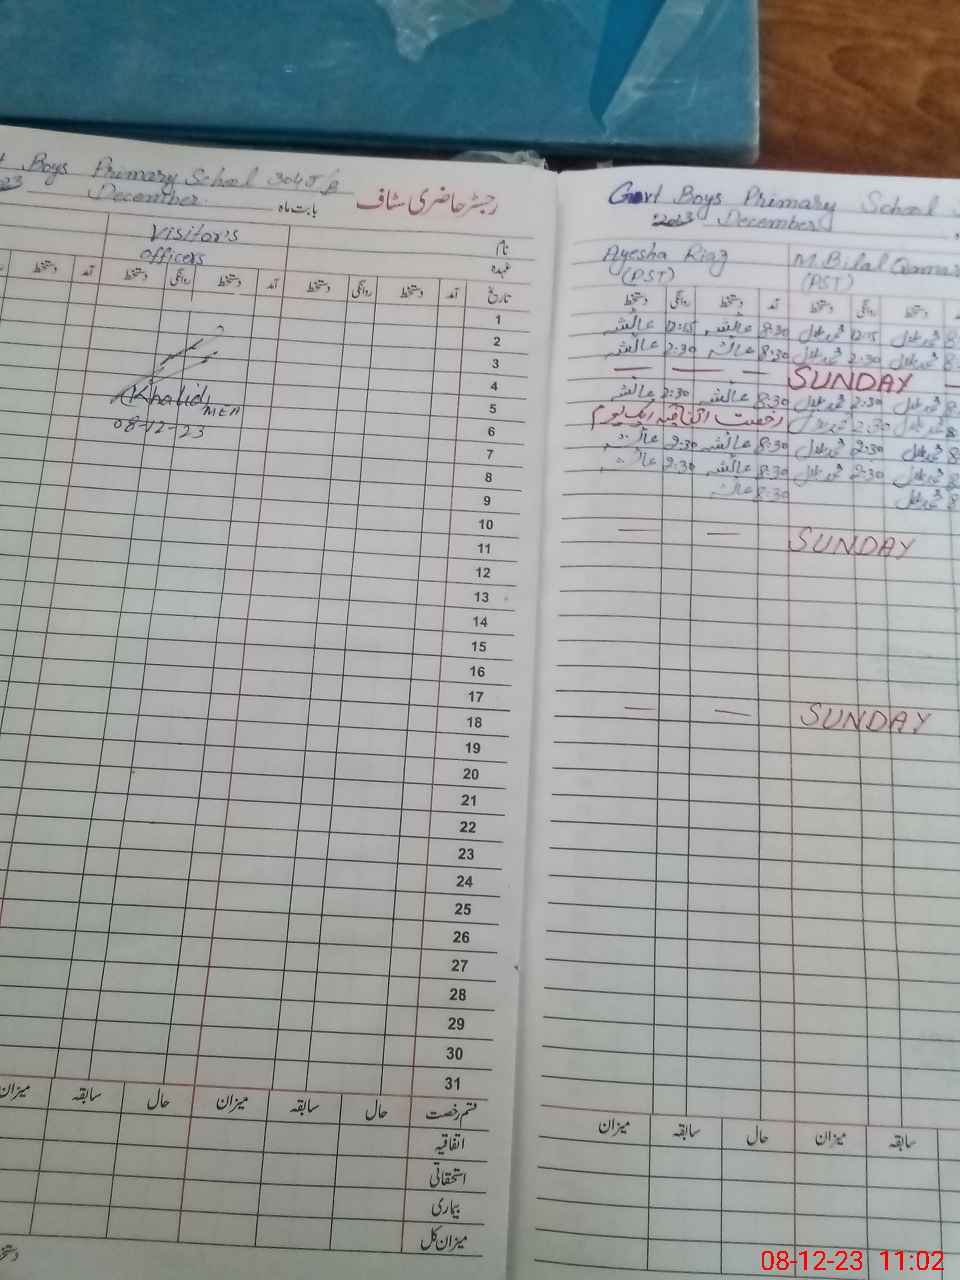 Boys Primary School 304 J/B
December بابت ماہ رجسٹر حاضری سٹاف
Visitor's نام
officers عہدہ
تاریخ آمد دستخط روانگی دستخط آمد دستخط روانگی دستخط آمد دستخط
1
2
3
4
5
6
7
8
9
10
11
12
13
14
15
16
17
18
19
20
21
22
23
24
25
26
27
28
29
30
31
Khalid MEA
08-12-23
قسم رخصت حال سابقہ میزان حال سابقہ میزان
اتفاقیہ
استحقاقی
بیماری
میزان کل
Govt Boys Primary School
2023 December
Ayesha Riaz M. Bilal Qamar
(PST) (PST)
دستخط روانگی دستخط آمد دستخط روانگی دستخط
عائشہ 12:15 عائشہ 8:30 محمد بلال 12:15 محمد بلال 8:
عائشہ 2:30 عائشہ 8:30 محمد بلال 2:30 محمد بلال 8:
— — — SUNDAY —
عائشہ 2:30 عائشہ 8:30 محمد بلال 2:30 محمد بلال 8:
رخصت اتفاقیہ ایک یوم محمد بلال 2:30 محمد بلال 8
عائشہ 2:30 عائشہ 8:30 محمد بلال 2:30 محمد بلال 8:
عائشہ 2:30 عائشہ 8:30 محمد بلال 2:30 محمد بلال 8:
عائشہ 8:30 محمد بلال 8
— — SUNDAY
— — SUNDAY
میزان سابقہ حال میزان سابقہ
08-12-23 11:02